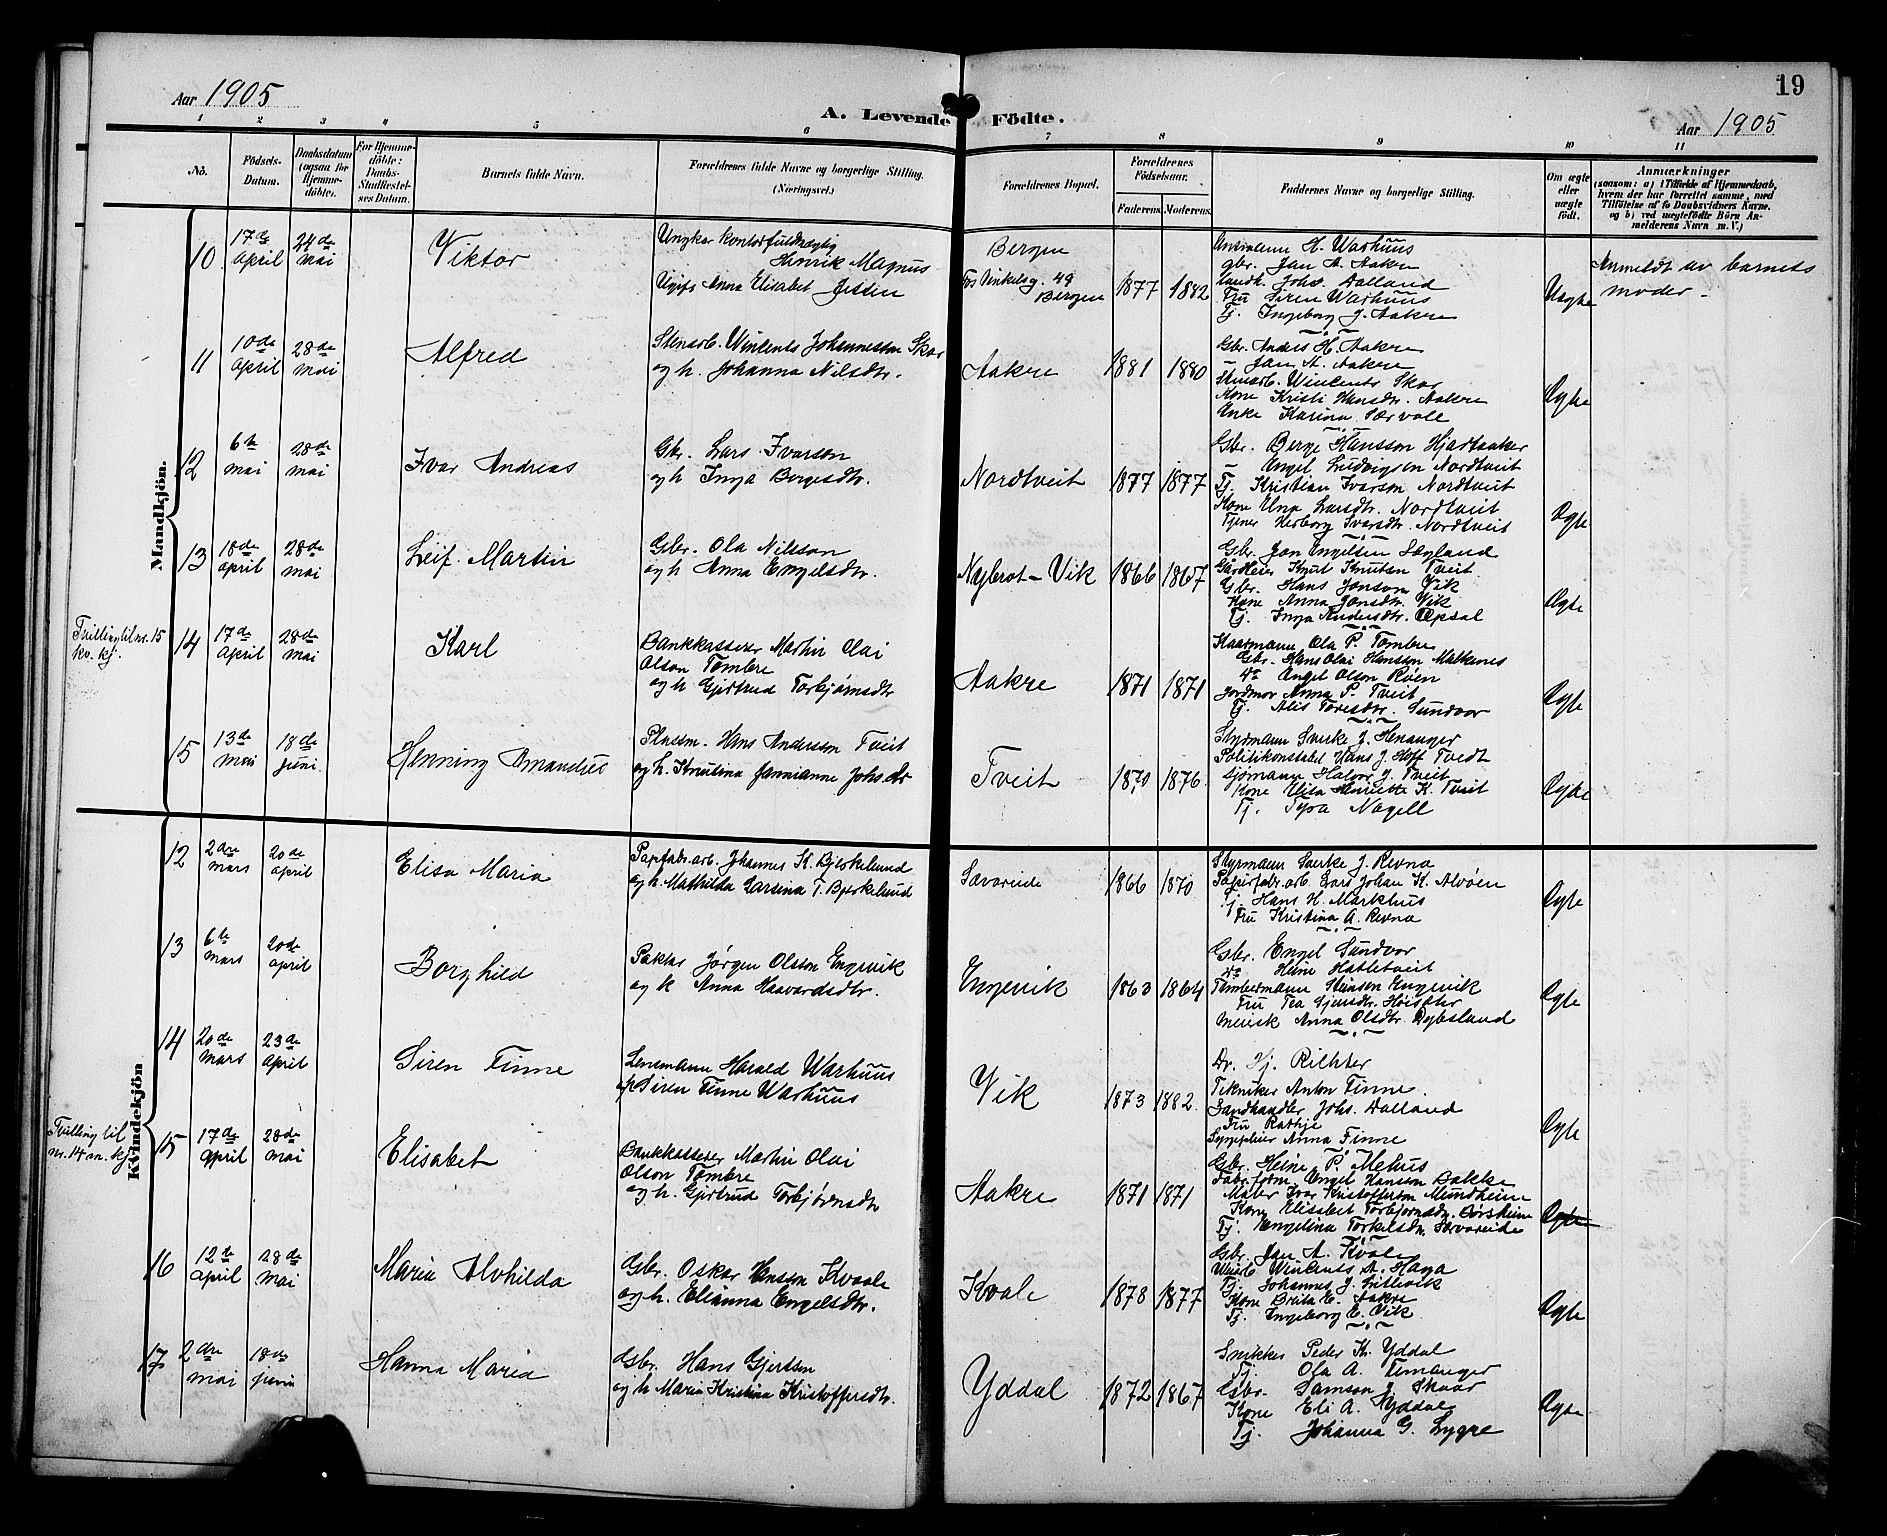 19
Aar 1905
Aar 1905
A. Levende Födte.
1 2 3 4 5 6 7 8 9 10 11
No.
Födsels-Datum.
Daabsdatum (ogsaa for Hjemmedöbte).
For Hjemmedöbte: Daabs-Stadfæstelses Datum.
Barnets fulde Navn.
Forældrenes fulde Navne og borgerlige Stilling. (Næringsvei.)
Forældrenes Bopæl.
Forældrenes Födselsaar.
Faderens. Moderens.
Faddernes Navne og borgerlige Stilling.
Om ægte eller uægte födt.
Anmærkninger
(saasom: a) i Tilfælde af Hjemmedaab, hvem der har forrettet samme, med Tilföielse af to Daabsvidners Navne, og b) ved uægtefödte Börn Anmelderens Navn m. V.)
Mandkjön.
10 17de april 24de mai Viktor
Ungkar kontorfuldmægtig
Henrik Magnus
Ugift Anna Elisabet Jetsen
Bergen
49
Bergen
1877 1882
H. Warhuus
Gbr. Jan A. Aakre
Landh. Johs. Dalland
Fru Siren Warhuus
Tj. Ingeborg J. Aakre
Uægte
Anmeldt av barnets
moder.
11 10de april 28de mai Alfred
Stenarb. Wincents Johannesson Skar
og h. Johanna Nilsdtr.
Aakre 1881 1880
Gbr. Anders H. Aakre
" Jan A. Aakre
Stenarb. Wincents Skar
Kone Kristi Hansdtr. Aakre
Enke Karina Særvole
Ægte
12 6te mai 28de mai Ivar Andreas
Gbr. Lars Ivarson
og h. Inga Bergesdtr.
Nordtveit 1877 1877
Gbr. Berge Hansson Hjartaaker
" Engel Ludvigsen Nordtveit
Tj. Kristian Ivarson Nordtveit
Kone Una Larsdtr. Nordtveit
Tjener Herborg Ivarsdtr. Nordtveit
Ægte
13 18de april 28de mai Leif Martin
Gbr. Ola Nilsson
og h. Anna Engelsdtr.
Nybrot - Vik 1866 1867
Gbr. Jon Engelsen Sæland
Knut Knutsen Tveit
Gbr. Hans Jonson Vik
Kone Anna Jonsdtr. Vik
Tj. Inga Andersdtr. Opsal
Ægte
Tvilling til nr. 15
kv. kj.
14 17de april 28de mai Karl
Bankkasserer Martin Olai
Olson Tombre
og h. Gjertrud Torbjørnsdtr
Aakre 1871 1871
Kaarmann Ola P. Tombre
Gbr. Hans Olai Hansson Malkenes
do Engel Olson Røen
Jordmor Anna P. Tveit
Tj. Alis Toresdtr. Sundvor
Ægte
15 13de mai 18de juni Henning Amandus
Plassm. Hans Andersson Tveit
og h. Knutina Jannianne Johsdtr
Tveit 1870 1876
Styrmann Sverke J. Henanger
Politikonstabel Hans J. Hoff Tvedt
Sjømann Halvor J. Tveit
Kone Elisa Henriette K. Tveit
Tj. Tyra Nagell
Ægte
Kvindekjön
12 2dre mars 20de april Elisa Maria
Papfabr. arb. Johannes K. Bjerkelund
og h. Mathilda Larsina T. Bjerkelund
Sævareide 1866 1870
Styrmann Sverke J. Revna
Papirfabr. arb Lars Johan K. Alvøen
Tj. Hans H. Markhus
Fru Kristina A. Revna
Ægte
13 6te mars 20de april Borghild
Paktar Jørgen Olsson Engevik
og h Anna Haavardsdtr.
Engevik 1863 1864
Gbr. Engel Sundvor
do Heine Hatletveit
Tømbermann Steinson Engevik
Fru Tea
Anna Olsdtr.
Ægte
14 20de mars 23de april Siren Finne
Lensmann Harald Warhuus
og h Siren Finne Warhuus
Vik 1873 1882.
Dr. Hj. Richter
Tekniker Anton Finne.
Landhandler Johs. Dalland
Fru Rathje
Anna Finne
Ægte
Tvilling til
nr. 14 m. kj.
15 17de april 28de mai Elisabet
Bankkasserer Martin Olai
Olson Tombre
og h. Gjertrud Torbjørnsdtr
Aakre 1871 1871
Gbr. Heine P. Mehus
Fabr. form. Engel Hansen Bakke
Maler Ivar Kristofferson Mundheim
Kone Elisabet Torbjørnsdtr.
Tj. Engelina Torkelsdtr. Sævareide
Ægte
16 12te april 28de mai Maria Alvhilda
Gbr. Oskar Hansson Kvaale
og h. Elianna Engelsdtr.
Kvale 1878 1877
Gbr. Jan A. Kvale
Wincents A. Haga
Tj. Johannes J.
Kone Brita E. Aakre
Tj. Ingeborg E. Vik
Ægte
17 2dre mai 18de juni Hanna Maria
Gbr. Hans Gjertson
og h Maria Kristina Kristoffersdtr.
Yddal 1872 1867
Snikker Peder Kn. Yddal
Tj. Ola A. Femanger
Gbr. Samson J. Skaar
Kone Eli A. Yddal
Tj. Johanna G. Lygre
Ægte